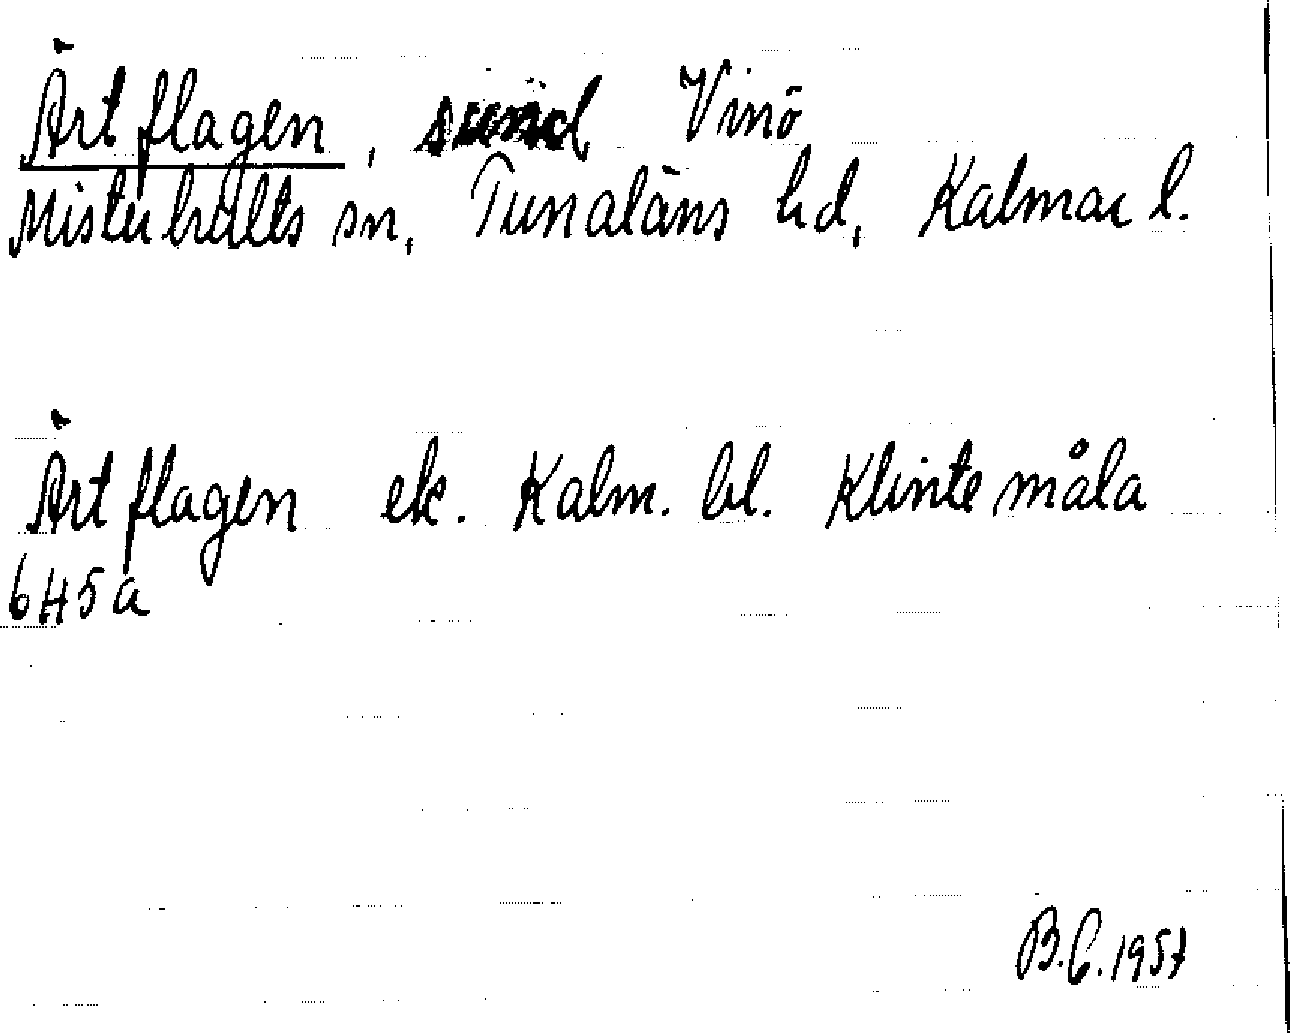 Ärtflagen, sund Vinö
Misterhults sn, Tunaläns hd, Kalmar l.
Ärtflagen ek. Kalm. bl. Klintemåla
6H5a
B.C. 1957